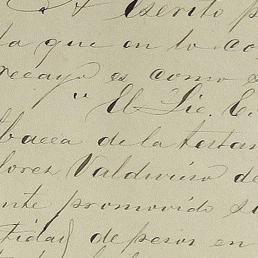 Escrito p
da que en lo co
recaya es como s
" El Lic. E.
lbacea de la testam
lores Valdivieso de
nte promovido su
tidad de pesos en